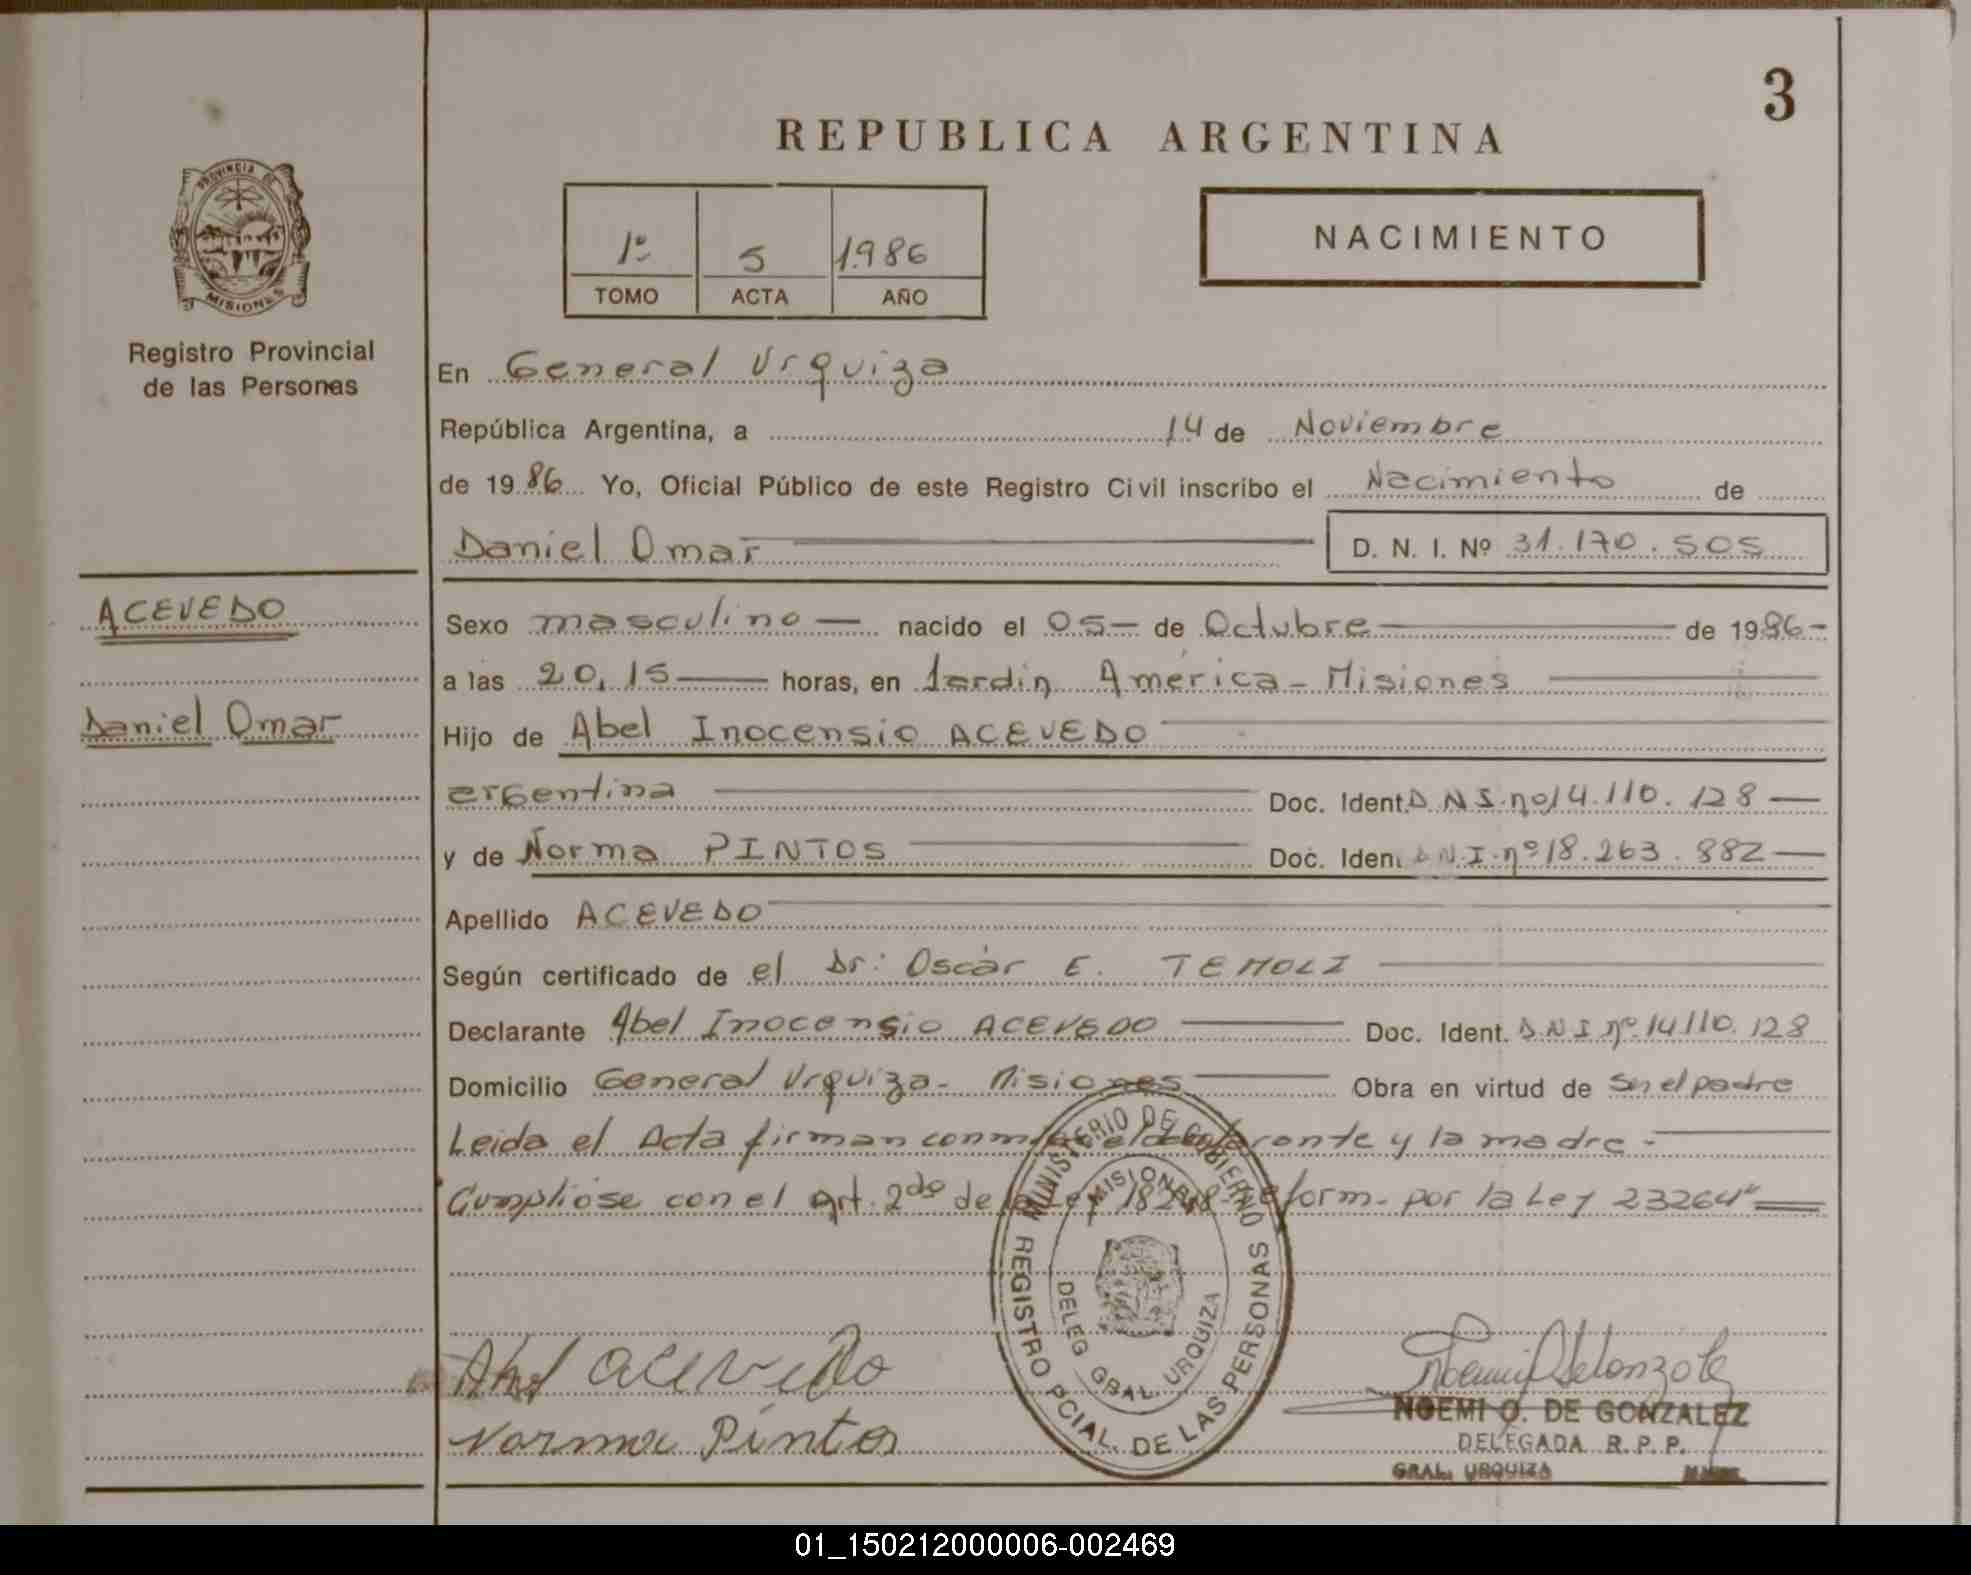 3
REPUBLICA ARGENTINA
PROVINCIA DE
MISIONES
Registro Provincial
de las Personas
1º 5 1.986
TOMO ACTA AÑO
NACIMIENTO
En General Urquiza
República Argentina, a 14 de Noviembre
de 19 86 Yo, Oficial Público de este Registro Civil inscribo el Nacimiento de
Daniel Omar D. N. I. Nº 31.170.505
ACEVEDO
Daniel Omar
Sexo masculino nacido el 05 de Octubre de 1986
a las 20,15 horas, en Jardin América - Misiones
Hijo de Abel Inocensio ACEVEDO
argentina Doc. Ident. D N I. nº 14.110.128
y de Norma PINTOS Doc. Iden. D.N.I. nº 18.263.882
Apellido ACEVEDO
Según certificado de el Dr: Oscar E. TEMOLI
Declarante Abel Inocensio ACEVEDO Doc. Ident. D.N.I. nº 14110.128
Domicilio General Urquiza - Misiones Obra en virtud de ser el padre
Leida el Acta firman conmigo el declarante y la madre -
Cumpliose con el art. 2do de la Ley 18248 reform. por la Ley 23264"
MINISTERIO DE GOBIERNO
MISIONES
DELEG GRAL. URQUIZA
REGISTRO PCIAL. DE LAS PERSONAS
Abel acevedo
Norma Pintos
NOEMI O. DE GONZALEZ
DELEGADA R. P. P.
GRAL. URQUIZA
01_150212000006-002469